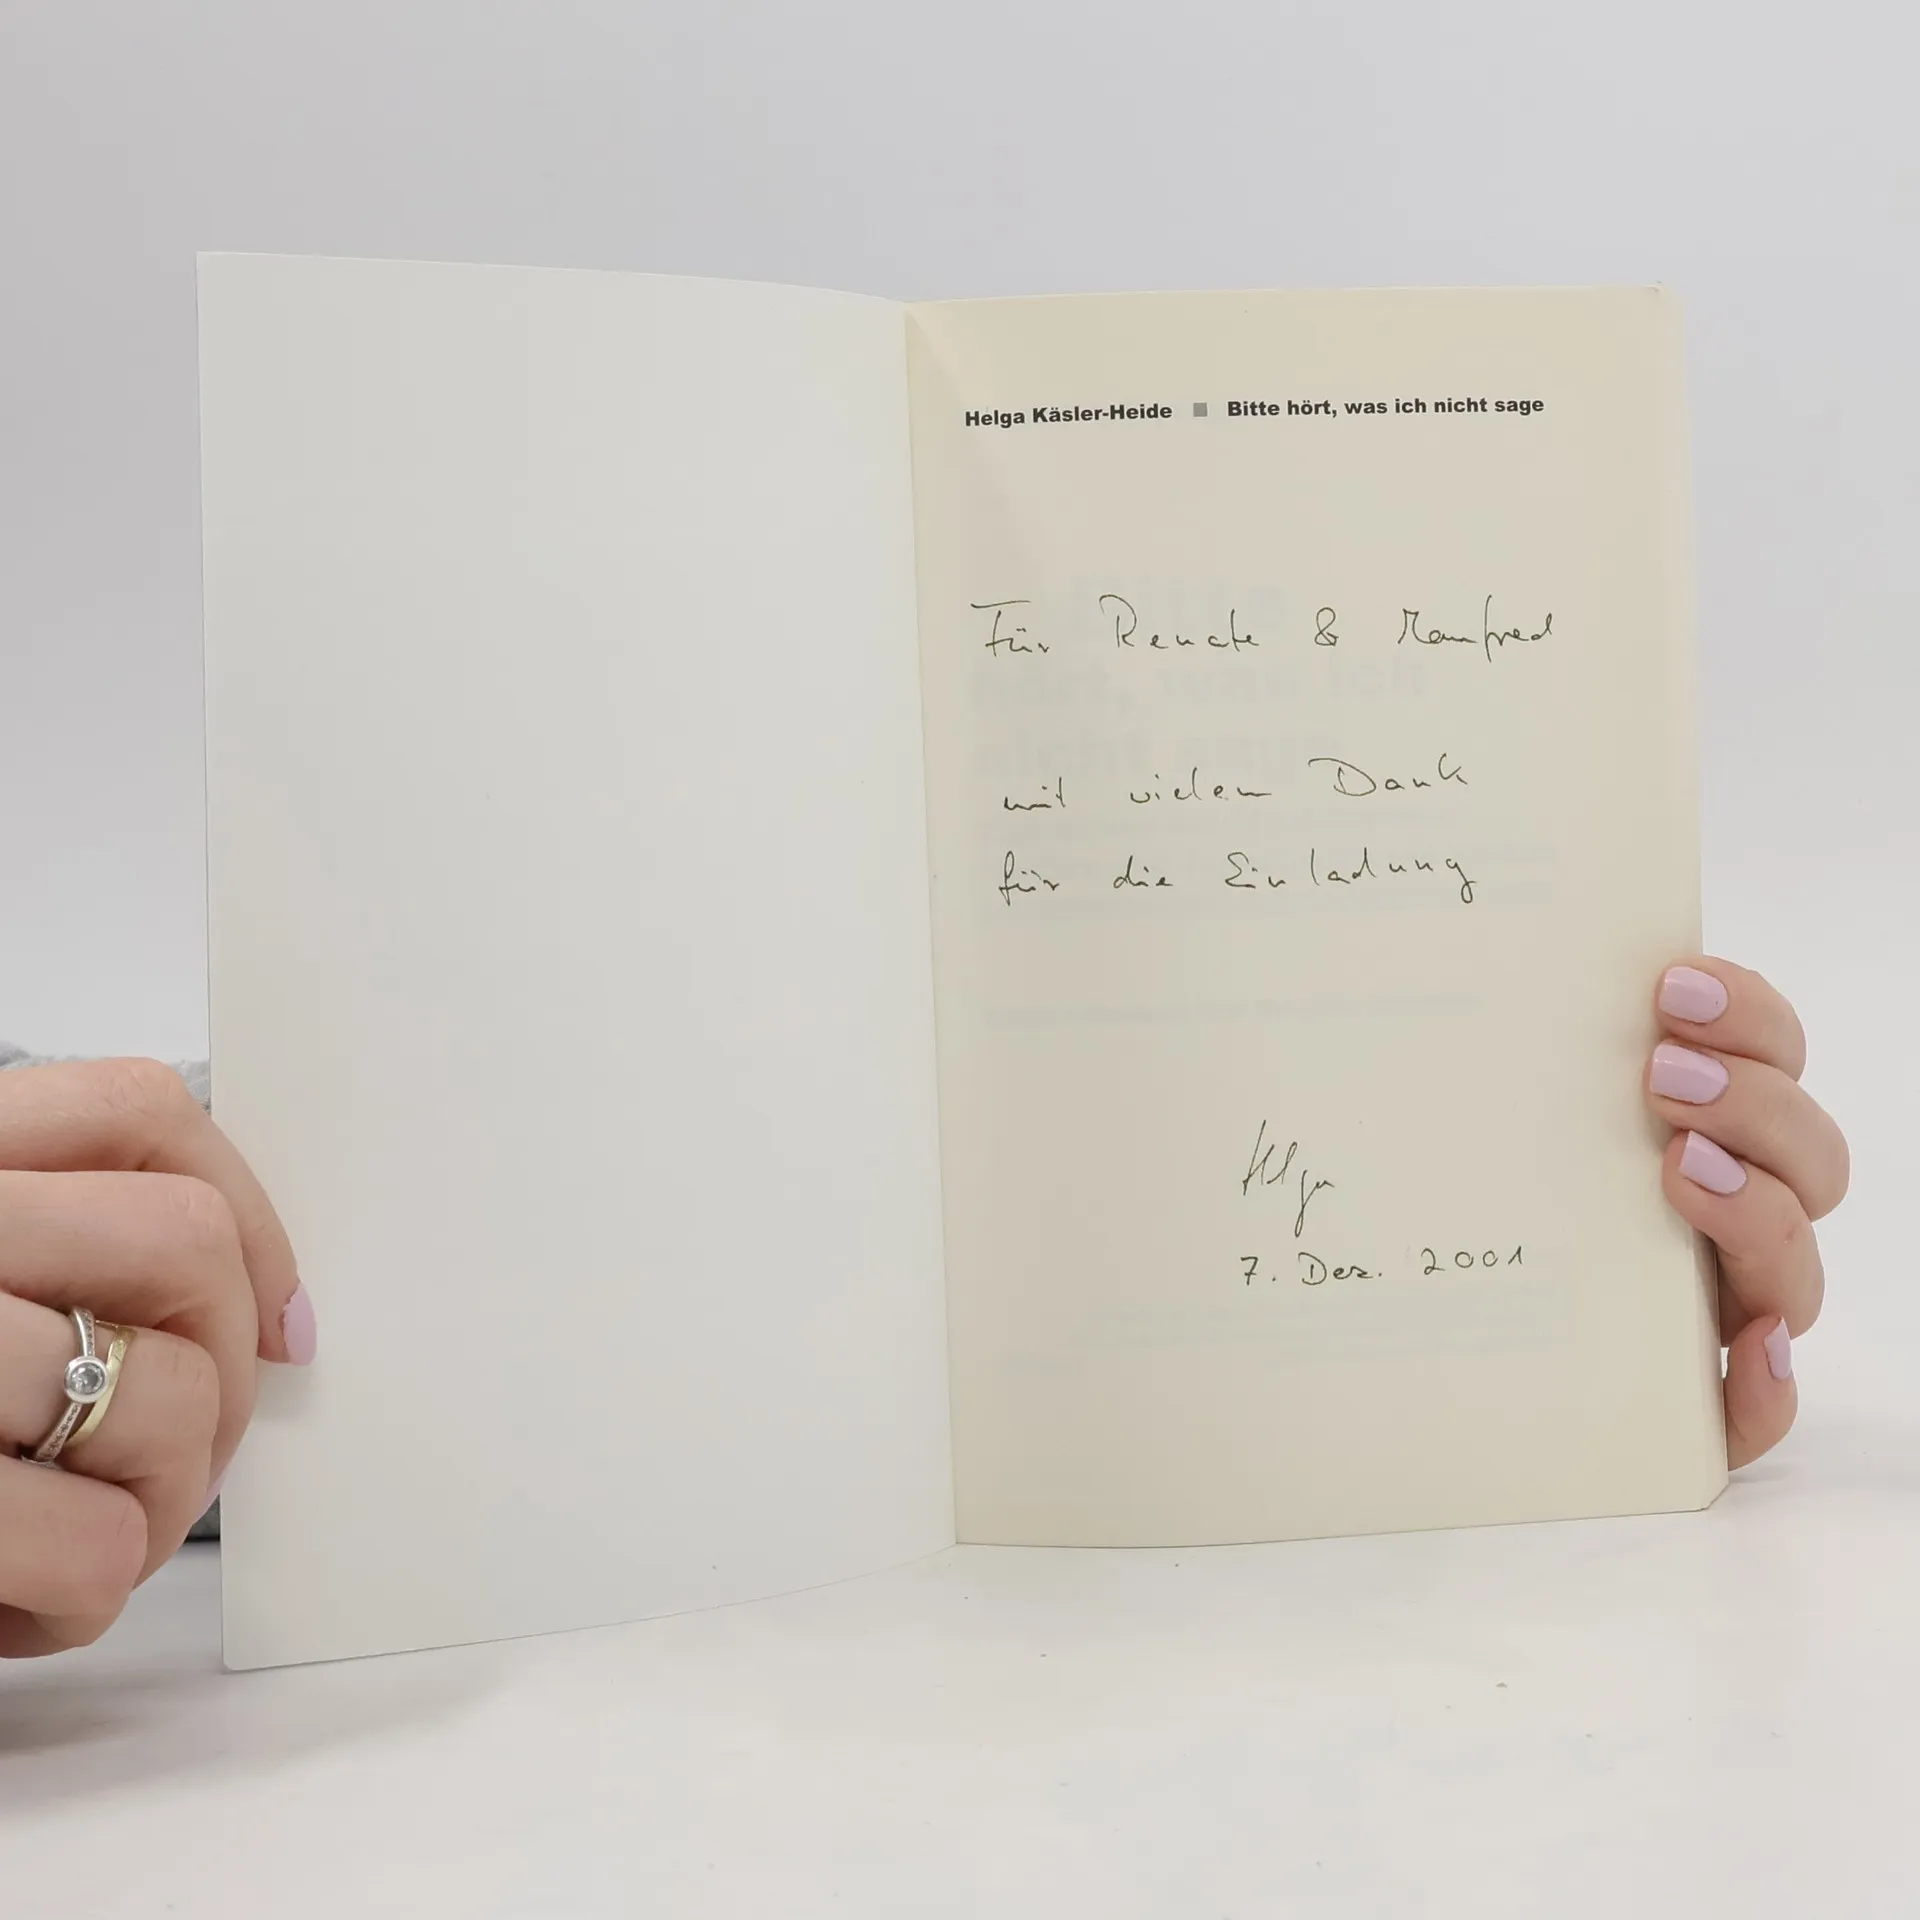 Helga Käsler-Heide ■ Bitte hört, was ich nicht sage
Für Renate & Manfred
mit vielem Dank
für die Einladung
Helga
7. Dez. 2001